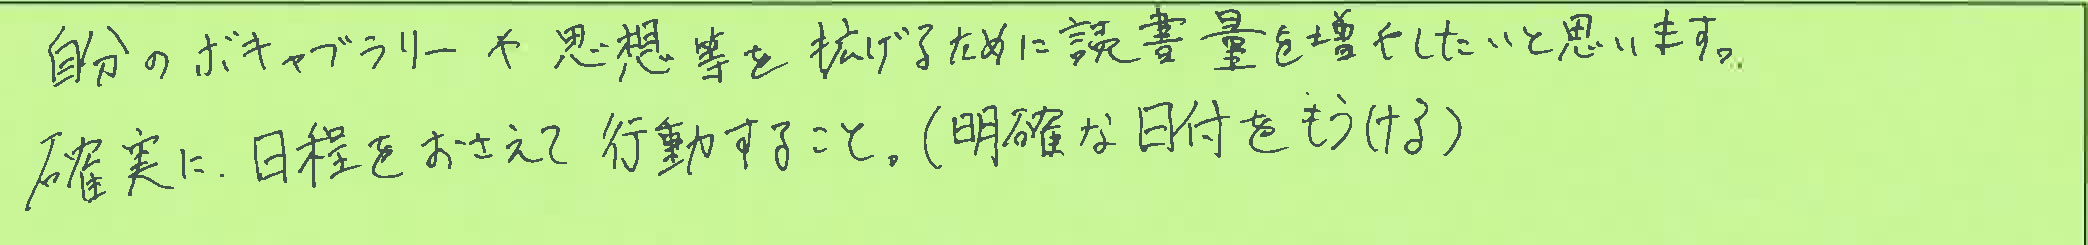 自分のボキャブラリーや思想等を拡げるために読書量を増やしたいと思います。
確実に、日程をおさえて行動すること。(明確な日付をもうける)